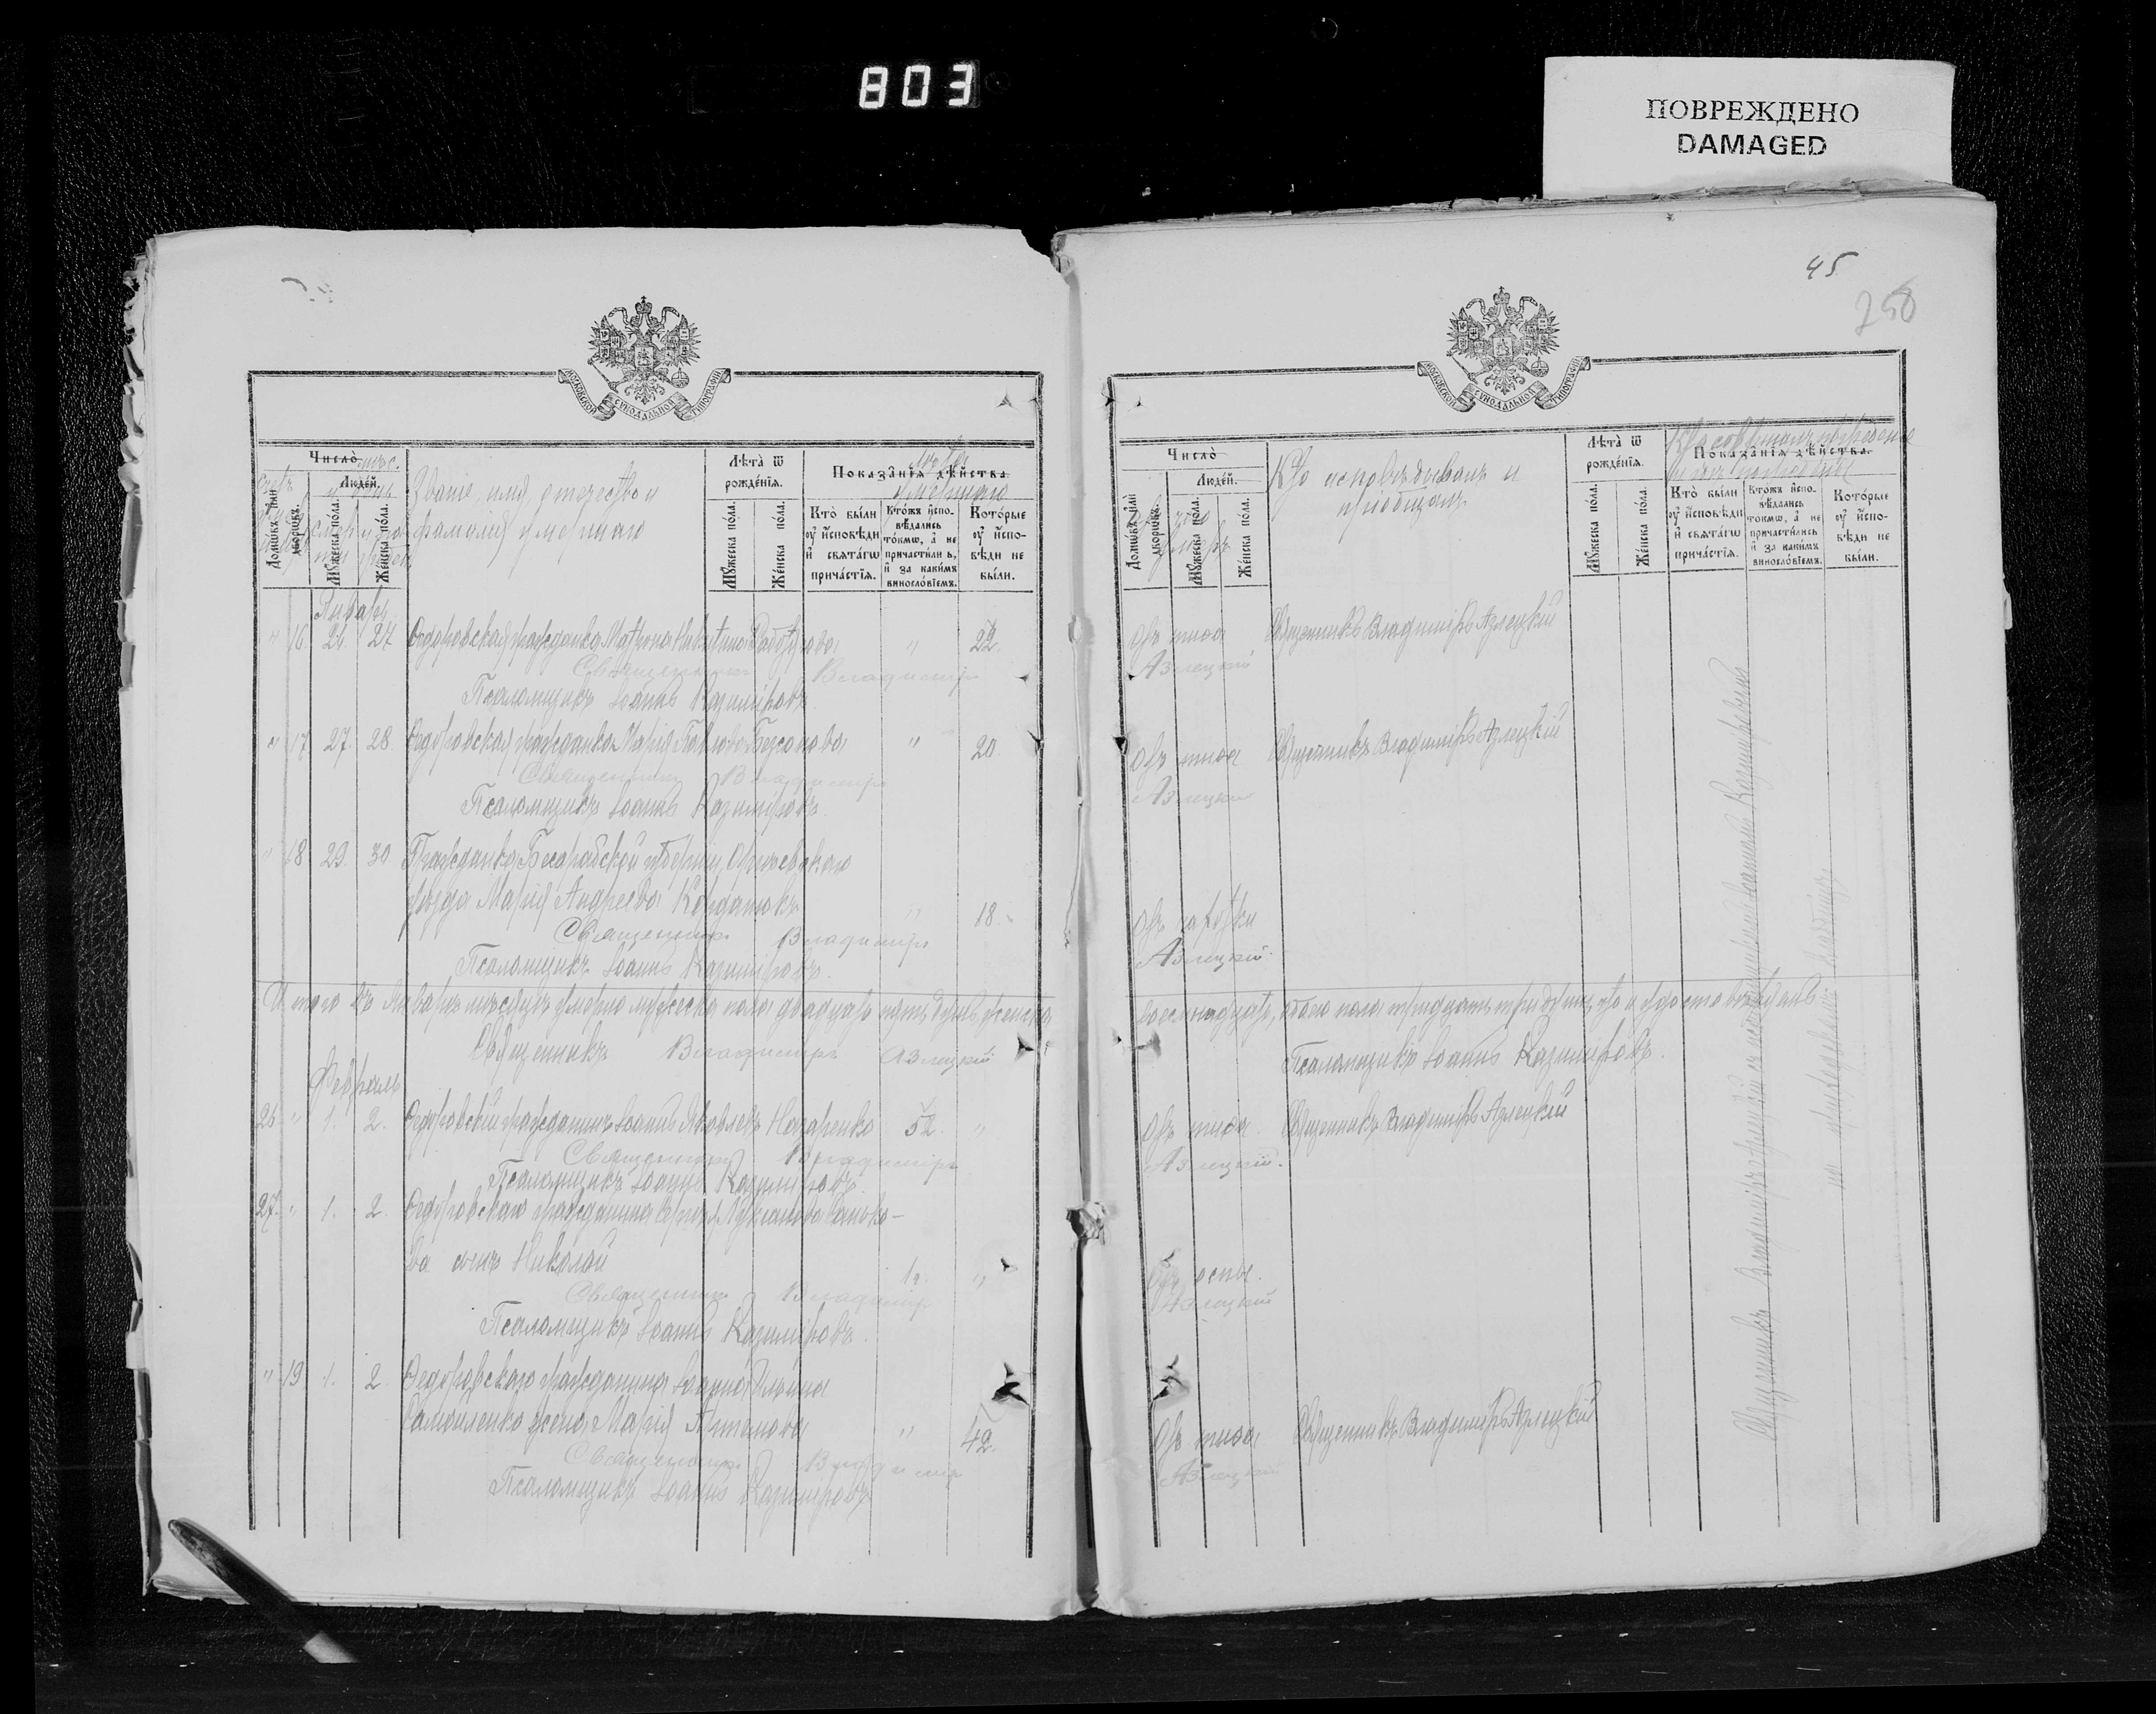 803
ПОВРЕЖДЕНО
DAMAGED
МОСКОВСКОЙ СѴНОДАЛЬНОЙ ТИПОГРАФІИ
Число̀ мѣс.
Люде́й.
Домѡ́въ и҆лѝ дворѡ́въ.
Мꙋ́жеска по́ла.
Же́нска по́ла.
Званіе, имя, отечество и
фамилія умершаго
Лѣта̀ ѿ рожде́нїѧ.
Мꙋ́жеска по́ла.
Же́нска по́ла.
Показа̑нїѧ дѣ́йства
умершаго
Кто̀ бы́ли ᲂу҆ и҆сповѣ́ди и҆ свѧта́гѡ прича́стїѧ.
Кто́жъ и҆спо-вѣ́дались то́кмѡ, а҆ не причасти́лись, и҆ за каки́мъ винослѡ́вїемъ.
Кото́рые ᲂу҆ и҆спо-вѣ́ди не бы́ли.
Январь
" 16. 26. 27 Ѳедоровская гражданка Матрона Никитина " 22.
Священникъ Владимиръ
Псаломщикъ Іоаннъ Казиміровъ
" 17 27. 28. Ѳедоровская гражданка Марія Павлова Безсонова " 20.
Священникъ Владимиръ
Псаломщикъ Іоаннъ Казиміровъ.
" 18 29. 30 Гражданка Бесарабской губерніи, Оргѣевскаго
уѣзда Марія Андреева " 18.
Священникъ Владимиръ
Псаломщикъ Іоаннъ Казиміровъ.
Итого въ Январѣ мѣсяцѣ умерло мужеска пола двадцать пять, женска
Священникъ Владимиръ Азлецкій
Февраль
26. " 1. 2. Ѳедоровскій гражданинъ Іоаннъ Яковлевъ Назаренко 52. "
Священникъ Владимиръ
Псаломщикъ Іоаннъ Казиміровъ
27. " 1. 2. Ѳедоровскаго гражданина
ва сынъ Николай "
Священникъ Владимиръ
Псаломщикъ Іоаннъ Казиміровъ.
" 19 1. 2. Ѳедоровскаго гражданина Іоанна Ильина
Самойленко жена Марія Артемова " 42.
Священникъ Владимиръ
Псаломщикъ Іоаннъ Казиміровъ
45
250
МОСКОВСКОЙ СѴНОДАЛЬНОЙ ТИПОГРАФІИ
Число̀
Люде́й.
Домѡ́въ и҆лѝ дворѡ́въ.
Мꙋ́жеска по́ла.
Же́нска по́ла.
Отъ чего умеръ
Кто исповѣдывалъ и
пріобщалъ
Лѣта̀ ѿ рожде́нїѧ.
Мꙋ́жеска по́ла.
Же́нска по́ла.
Кто совершалъ погребеніе
Показа̑нїѧ дѣ́йства.
Кто̀ бы́ли ᲂу҆ и҆сповѣ́ди и҆ свѧта́гѡ прича́стїѧ.
Кто́жъ и҆спо-вѣ́дались то́кмѡ, а҆ не причасти́лись и҆ за каки́мъ винослѡ́вїемъ.
Кото́рые ᲂу҆ и҆спо-вѣ́ди не бы́ли.
Отъ тифа Священникъ Владиміръ Азлецкій
Азлецкій
Отъ тифа Священникъ Владиміръ Азлецкій
Азлецкій
Отъ чахотки
Азлецкій.
восемнадцать, обоего пола
Псаломщикъ Іоаннъ Казиміровъ.
Отъ тифа Священникъ Владиміръ Азлецкій
Азлецкій.
Отъ оспы.
Азлецкій
Отъ тифа Священникъ Владиміръ Азлецкій
Азлецкій
Священникъ Владиміръ Азлецкій съ псаломщикомъ Іоанномъ Казиміровымъ